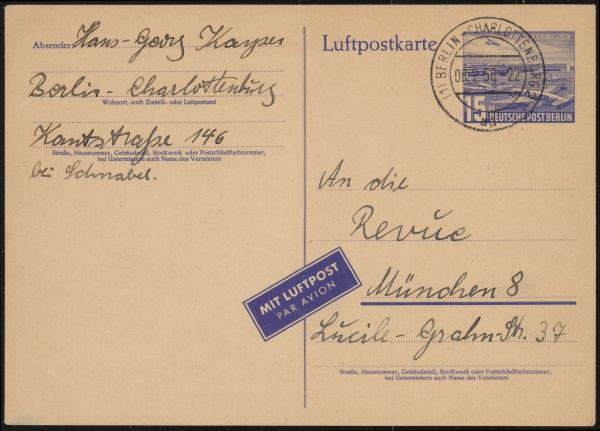 Absender: Hans-Georg Kayser
Berlin-Charlottenburg
Wohnort, auch Zustell- oder Leitpostamt
Kantstraße 146
Straße, Hausnummer, Gebäudeteil, Stockwerk oder Postschließfachnummer,
bei Untermietern auch Name des Vermieters
bei Schnabel.
Luftpostkarte
(1) BERLIN-CHARLOTTENBURG 2
56.-22
15 PF
DEUTSCHE POST BERLIN
An die
Revue
München 8
Lucile-Grahn-Str. 37
Straße, Hausnummer, Gebäudeteil, Stockwerk oder Postschließfachnummer,
bei Untermietern auch Name des Vermieters
MIT LUFTPOST
PAR AVION